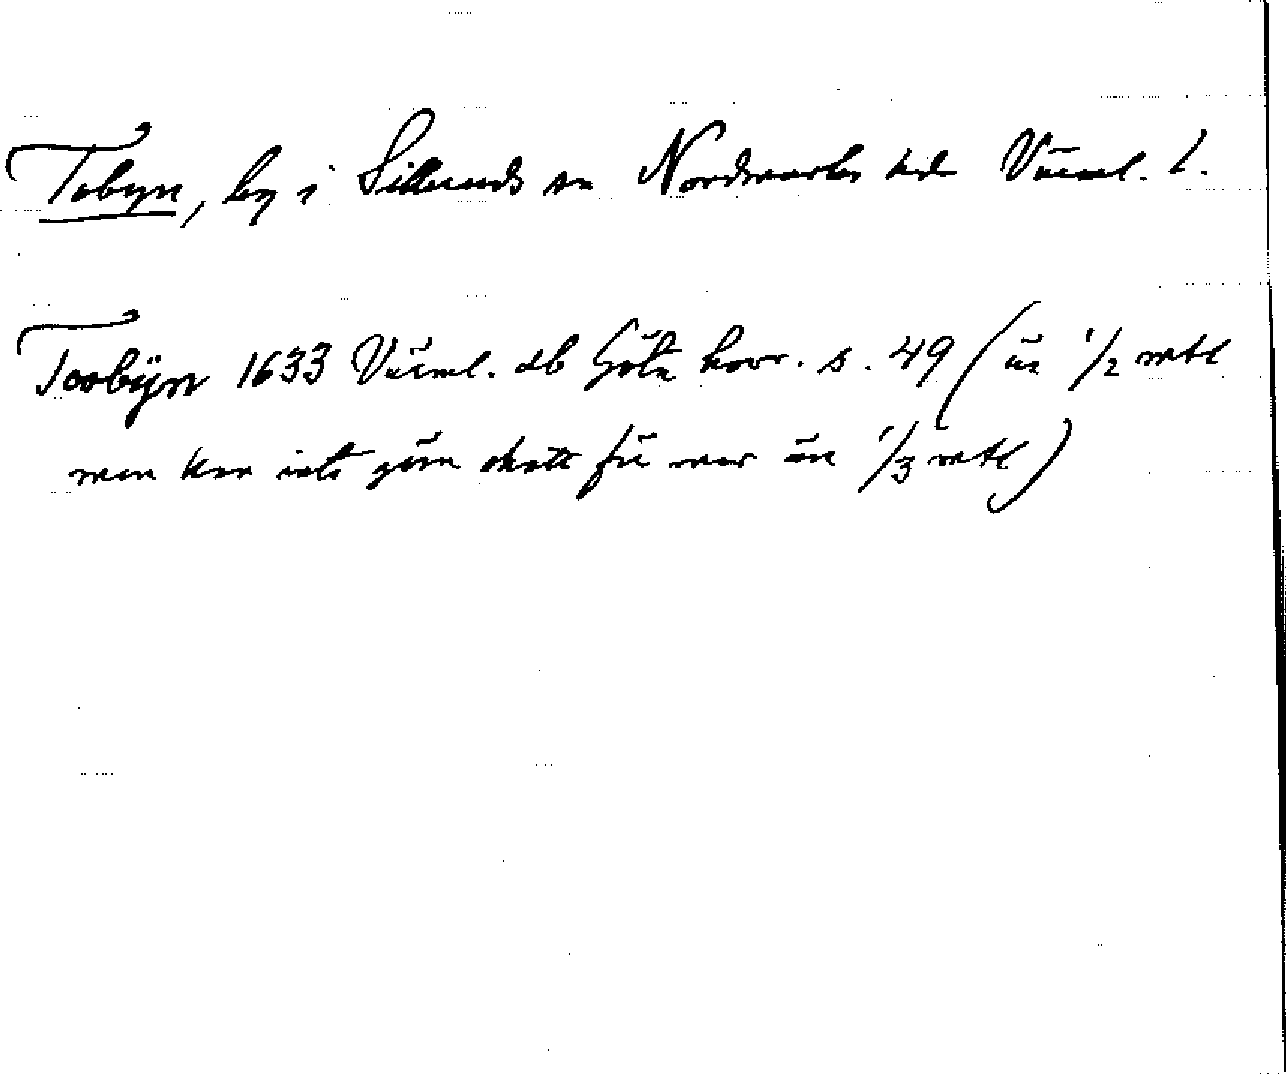 Tobyn, by i Silleruds sn Nordmarks hd Värml. l.
Toobÿn 1633 Värml. db Götz korr. s. 49 (är 1/2 mtl
men kan inte göra skatt för mer än 1/3 mtl)